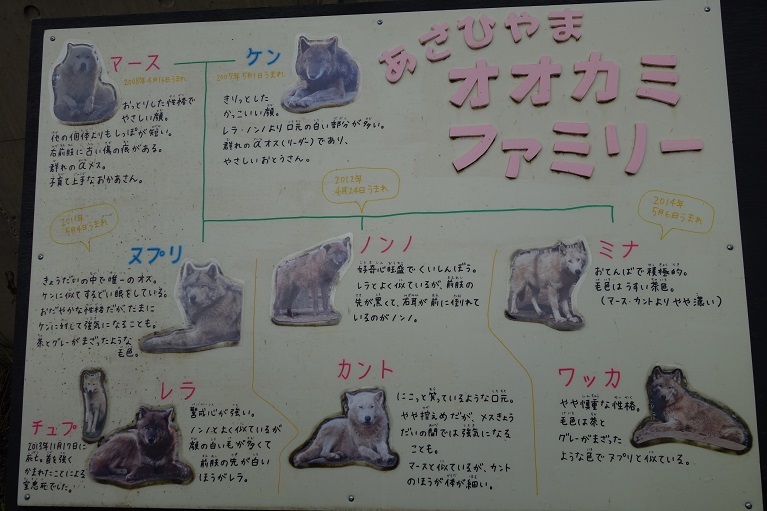 あさひやま
オオカミ
ファミリー
マース
2008年4月16日うまれ
おっとりした性格で
やさしい顔。
他の個体よりもしっぽが短い。
右前肢に古い傷の痕がある。
群れのαメス。
子育て上手なおかあさん。
ケン
きりっとした
かっこいい顔。
レラ・ノンノより口元の白い部分が多い。
群れのαオス(リーダー)であり、
やさしいおとうさん。
2011年
ヌプリ
きょうだいの中で唯一のオス。
ケンに似てするどい眼をしている。
おだやかな性格だが、たまに
ケンに対して強気になることも。
茶とグレーがまざったような
毛色。
レラ
警戒心が強い。
ノンノとよく似ているが
顔の白い毛が多くて
前肢の先が白い
ほうがレラ。
チュプ
2013年11月17日に
死亡。首を強く
かまれたことによる
窒息死でした…
2012年
4月24日うまれ
ノンノ
好奇心旺盛でくいしんぼう。
レラとよく似ているが、前肢の
先が黒くて、右耳が前に倒れて
いるのがノンノ。
カント
にこっと笑っているような口元。
やや控えめだが、メスきょう
だいの間では強気になる
ことも。
マースと似ているが、カント
のほうが体が細い。
2014年
5月6日うまれ
ミナ
おてんばで積極的。
毛色はうすい茶色。
(マース・カントよりやや濃い)
ワッカ
やや慎重な性格。
毛色は茶と
グレーがまざった
ような色でヌプリと似ている。